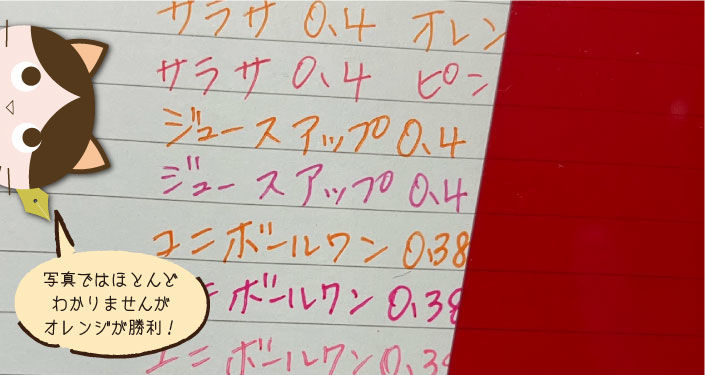 サラサ 0.4 オレン
サラサ 0.4 ピン
ジュースアップ 0.4
ジュースアップ 0.4
ユニボールワン 0.38
ニボールワン 0.38
ユニボールワン 0.38
写真ではほとんど
わかりませんが
オレンジが勝利！